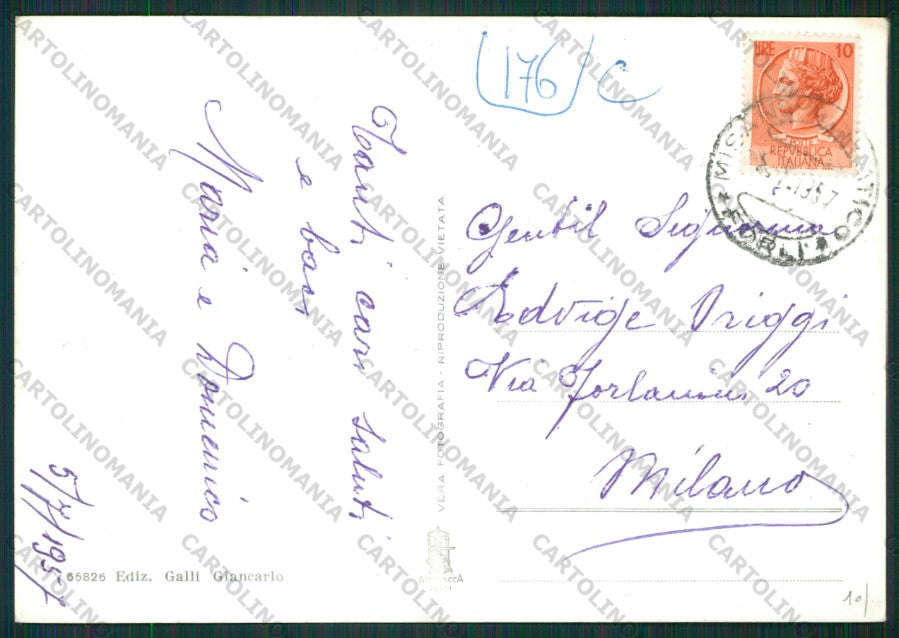 176 C
LIRE 10
REPVBBLICA
ITALIANA
MISANO ADRIATICO
* FORLI' *
Tanti cari saluti
e baci
Maria e Domenico
5/7/1957
65826 Ediz. Galli Giancarlo
VERA FOTOGRAFIA - RIPRODUZIONE VIETATA
Gentil Signorina
Edvige Origgi
Via Forlanini 20
Milano
10/
CARTOLINOMANIA